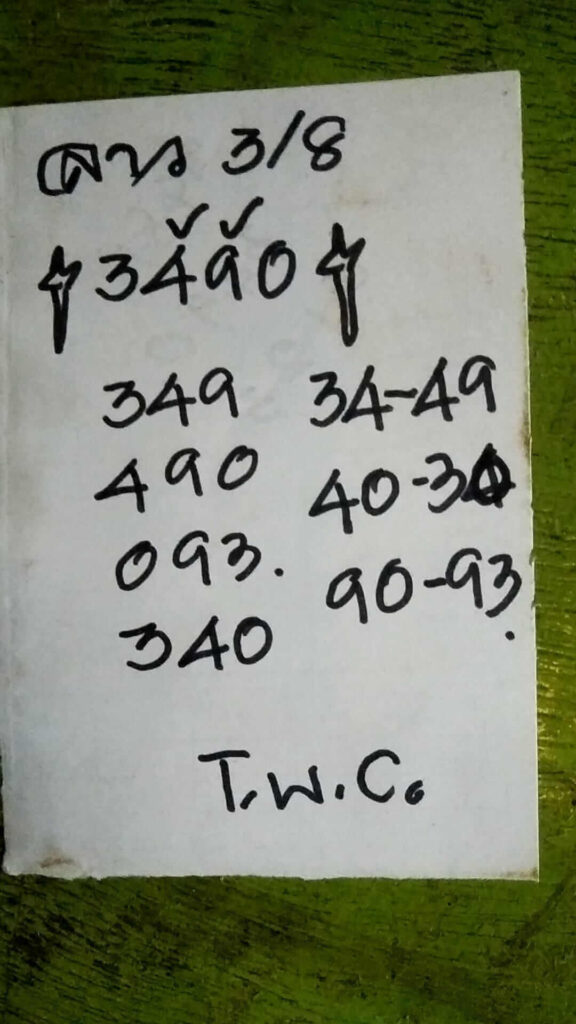 ลาว 3/8
3490
349 34-49
490 40-30
093. 90-93.
340
T.W.C.